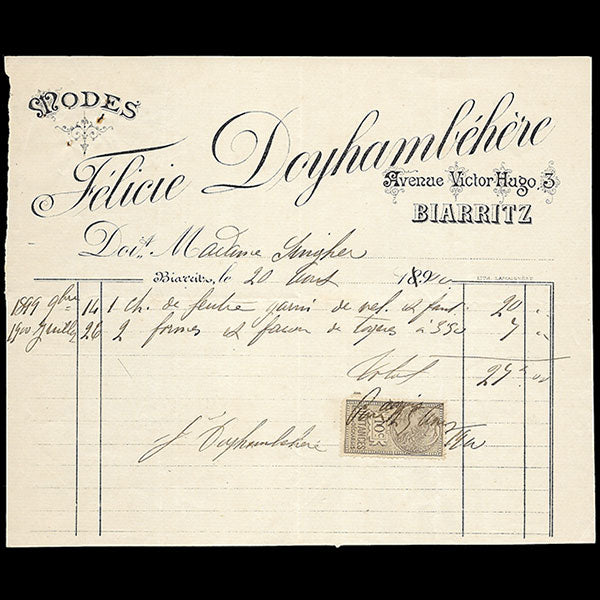 MODES
Félicie Doyhambéhère
Avenue Victor Hugo, 3
BIARRITZ
Doit Madame Singher
Biarritz, le 20 Aout 1890
1899 9bre 14 1 ch. de feutre garni de vel. et fant. 20 "
1900 Juillet 26 2 formes et façon de toques à 3 50 7 "
Total 27 "
10c
CENTIMES
F. Doyhambéhère